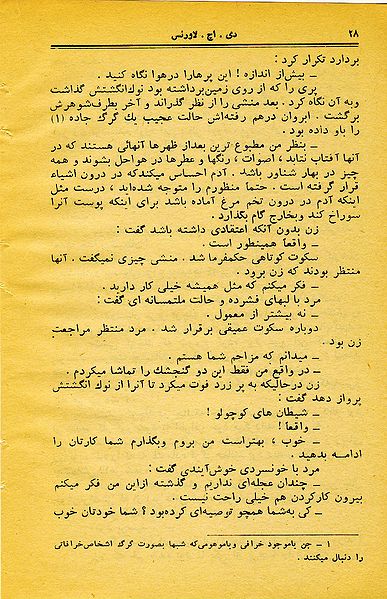 ۲۸
دی . اچ . لاورنس
بردارد تکرار کرد :
ــ بیش‌از اندازه ! این پرهارا درهوا نگاه کنید .
پری را که از روی زمین‌برداشته بود نوك‌انگشتش گذاشت
وبه آن نگاه کرد . بعد منشی را از نظر گذراند و آخر بطرف‌شوهرش
برگشت . ابروان درهم رفته‌اش حالت عجیب یك گرگ جاده (۱)
را باو داده بود .
ــ بنظر من مطبوع ترین بعداز ظهرها آنهائی هستند که در
آنها آفتاب نتابد ، اصوات ، رنگها و عطرها در هواحل بشوند و همه
چیز در بهار شناور باشد . آدم احساس میکندکه در درون اشیاء
قرار گرفته است . حتما منظورم را متوجه شده‌اید ، درست مثل
اینکه آدم در درون تخم مرغ آماده باشد برای اینکه پوست آنرا
سوراخ کند وبخارج گام بگذارد .
زن بدون آنکه اعتقادی داشته باشد گفت :
ــ واقعاً همینطور است .
سکوت کوتاهی حکمفرما شد . منشی چیزی نمیگفت . آنها
منتظر بودند که زن برود .
ــ فکر میکنم که مثل همیشه خیلی کار دارید .
مرد با لبهای فشرده و حالت ملتمسانه ای گفت :
ــ نه بیشتر از معمول .
دوباره سکوت عمیقی برقرار شد . مرد منتظر مراجعت
زن بود .
ــ میدانم که مزاحم شما هستم .
ــ در واقع من فقط این دو گنجشك را تماشا میکردم .
زن درحالیکه به پر زرد فوت میکرد تا آنرا از نوك انگشتش
پرواز دهد گفت :
ــ شیطان های کوچولو !
ــ واقعاً !
ــ خوب ، بهتراست من بروم وبگذارم شما کارتان را
ادامــه بدهید .
مرد با خونسردی خوش‌آیندی گفت :
ــ چندان عجله‌ای نداریم و گذشته ازاین من فکر میکنم
بیرون کارکردن هم خیلی راحت نیست .
ــ کی به‌شما همچو توصیه‌ای کرده‌بود ؟ شما خودتان خوب
۱ ــ جن یاموجود خرافی وباموهومی‌که شبها بصورت گرگ اشخاص‌خرافاتی
را دنبال میکنند .